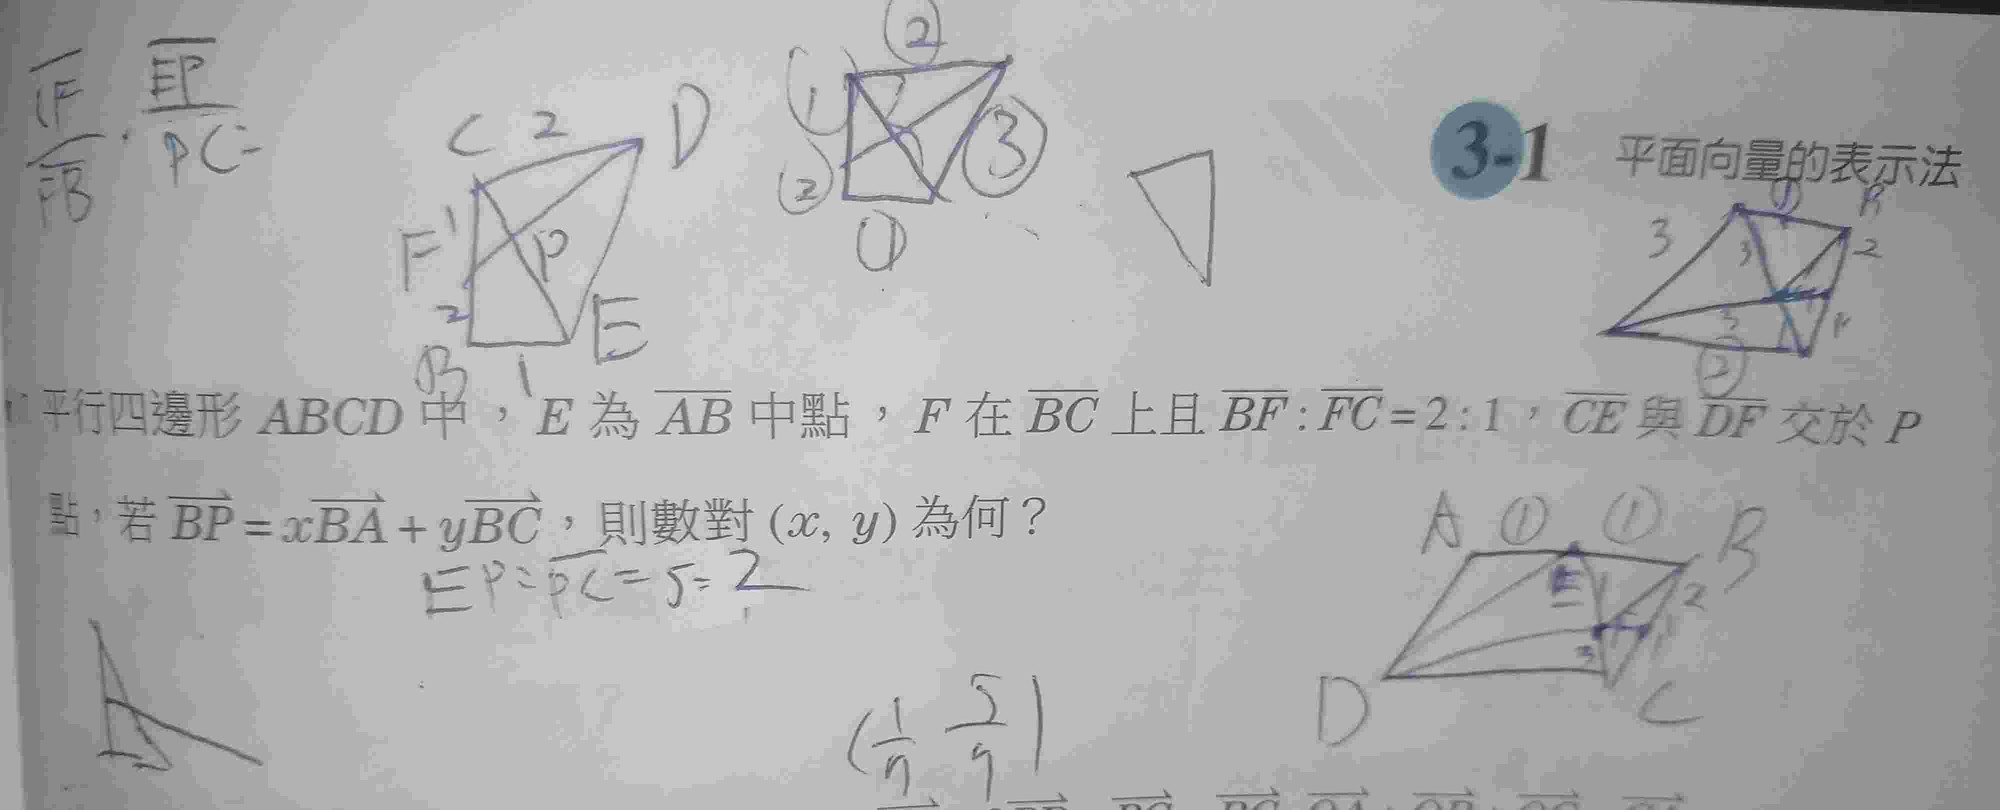 CF EP
FB · PC =
C 2 D
1
F P
2
B 1 E
② 
① ③
②
①
3-1 平面向量的表示法
① B
3 3 2
3 1
②
平行四邊形 ABCD 中，E 為 AB 中點，F 在 BC 上且 BF : FC = 2 : 1，CE 與 DF 交於 P
點，若 BP = xBA + yBC，則數對 (x, y) 為何？
EP : PC = 5 : 2
A ① ① B
E 1 2
1
3
D C